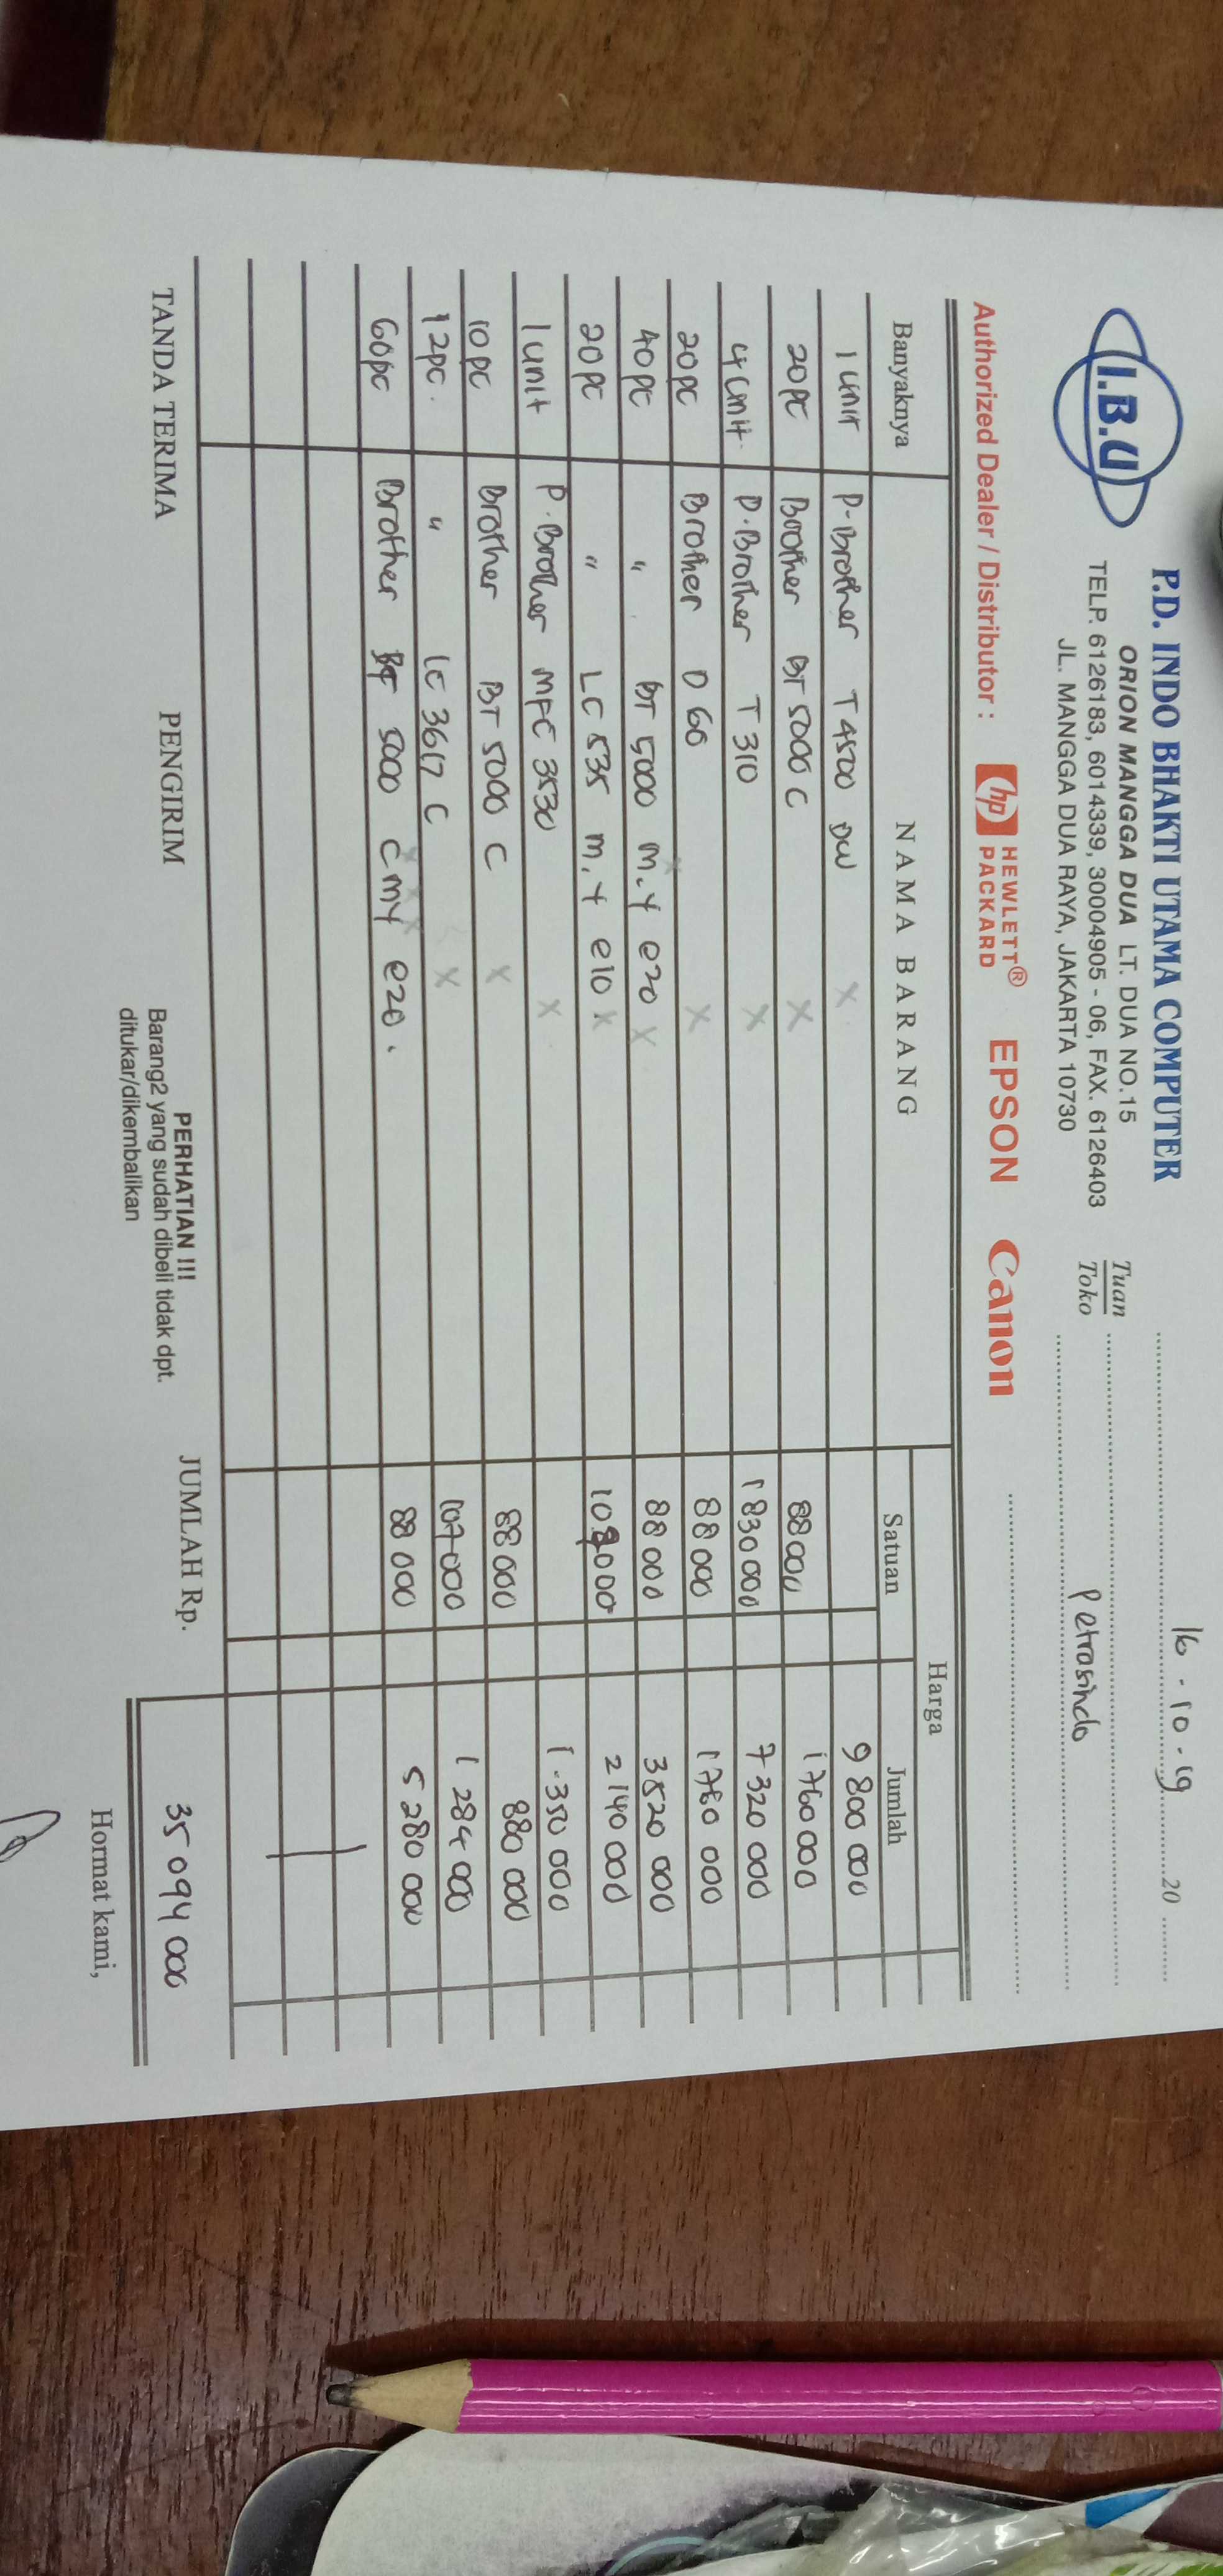 I.B.U
P.D. INDO BHAKTI UTAMA COMPUTER
ORION MANGGA DUA LT. DUA NO.15
TELP. 6126183, 6014339, 30004905 - 06, FAX. 6126403
JL. MANGGA DUA RAYA, JAKARTA 10730
16 - 10 - 19 20
Tuan
Toko
Petrosindo
Authorized Dealer / Distributor : hp HEWLETT® PACKARD EPSON Canon
Banyaknya NAMA BARANG Harga
Satuan Jumlah
1 unit P-Brother T4500 DW x 9 800 000
20 pc Brother BT 5000 C x 88 000 1 760 000
4 unit P. Brother T 310 x 1 830 000 7 320 000
20 pc Brother D 60 x 88 000 1 760 000
40 pc " BT 5000 M.Y @20 x 88 000 3 520 000
20 pc " LC 535 M.Y @10 x 000 2 140 000
1 unit P. Brother MFC 3530 x 1.350 000
10 pc Brother BT 5000 C x 88 000 880 000
12 pc. " LC 3617 C x 107 000 1 284 000
60 pc Brother BT 5000 CMY @20. 88 000 5 280 000
TANDA TERIMA PENGIRIM PERHATIAN !!! JUMLAH Rp. 35 094 000
Barang2 yang sudah dibeli tidak dpt.
ditukar/dikembalikan
Hormat kami,